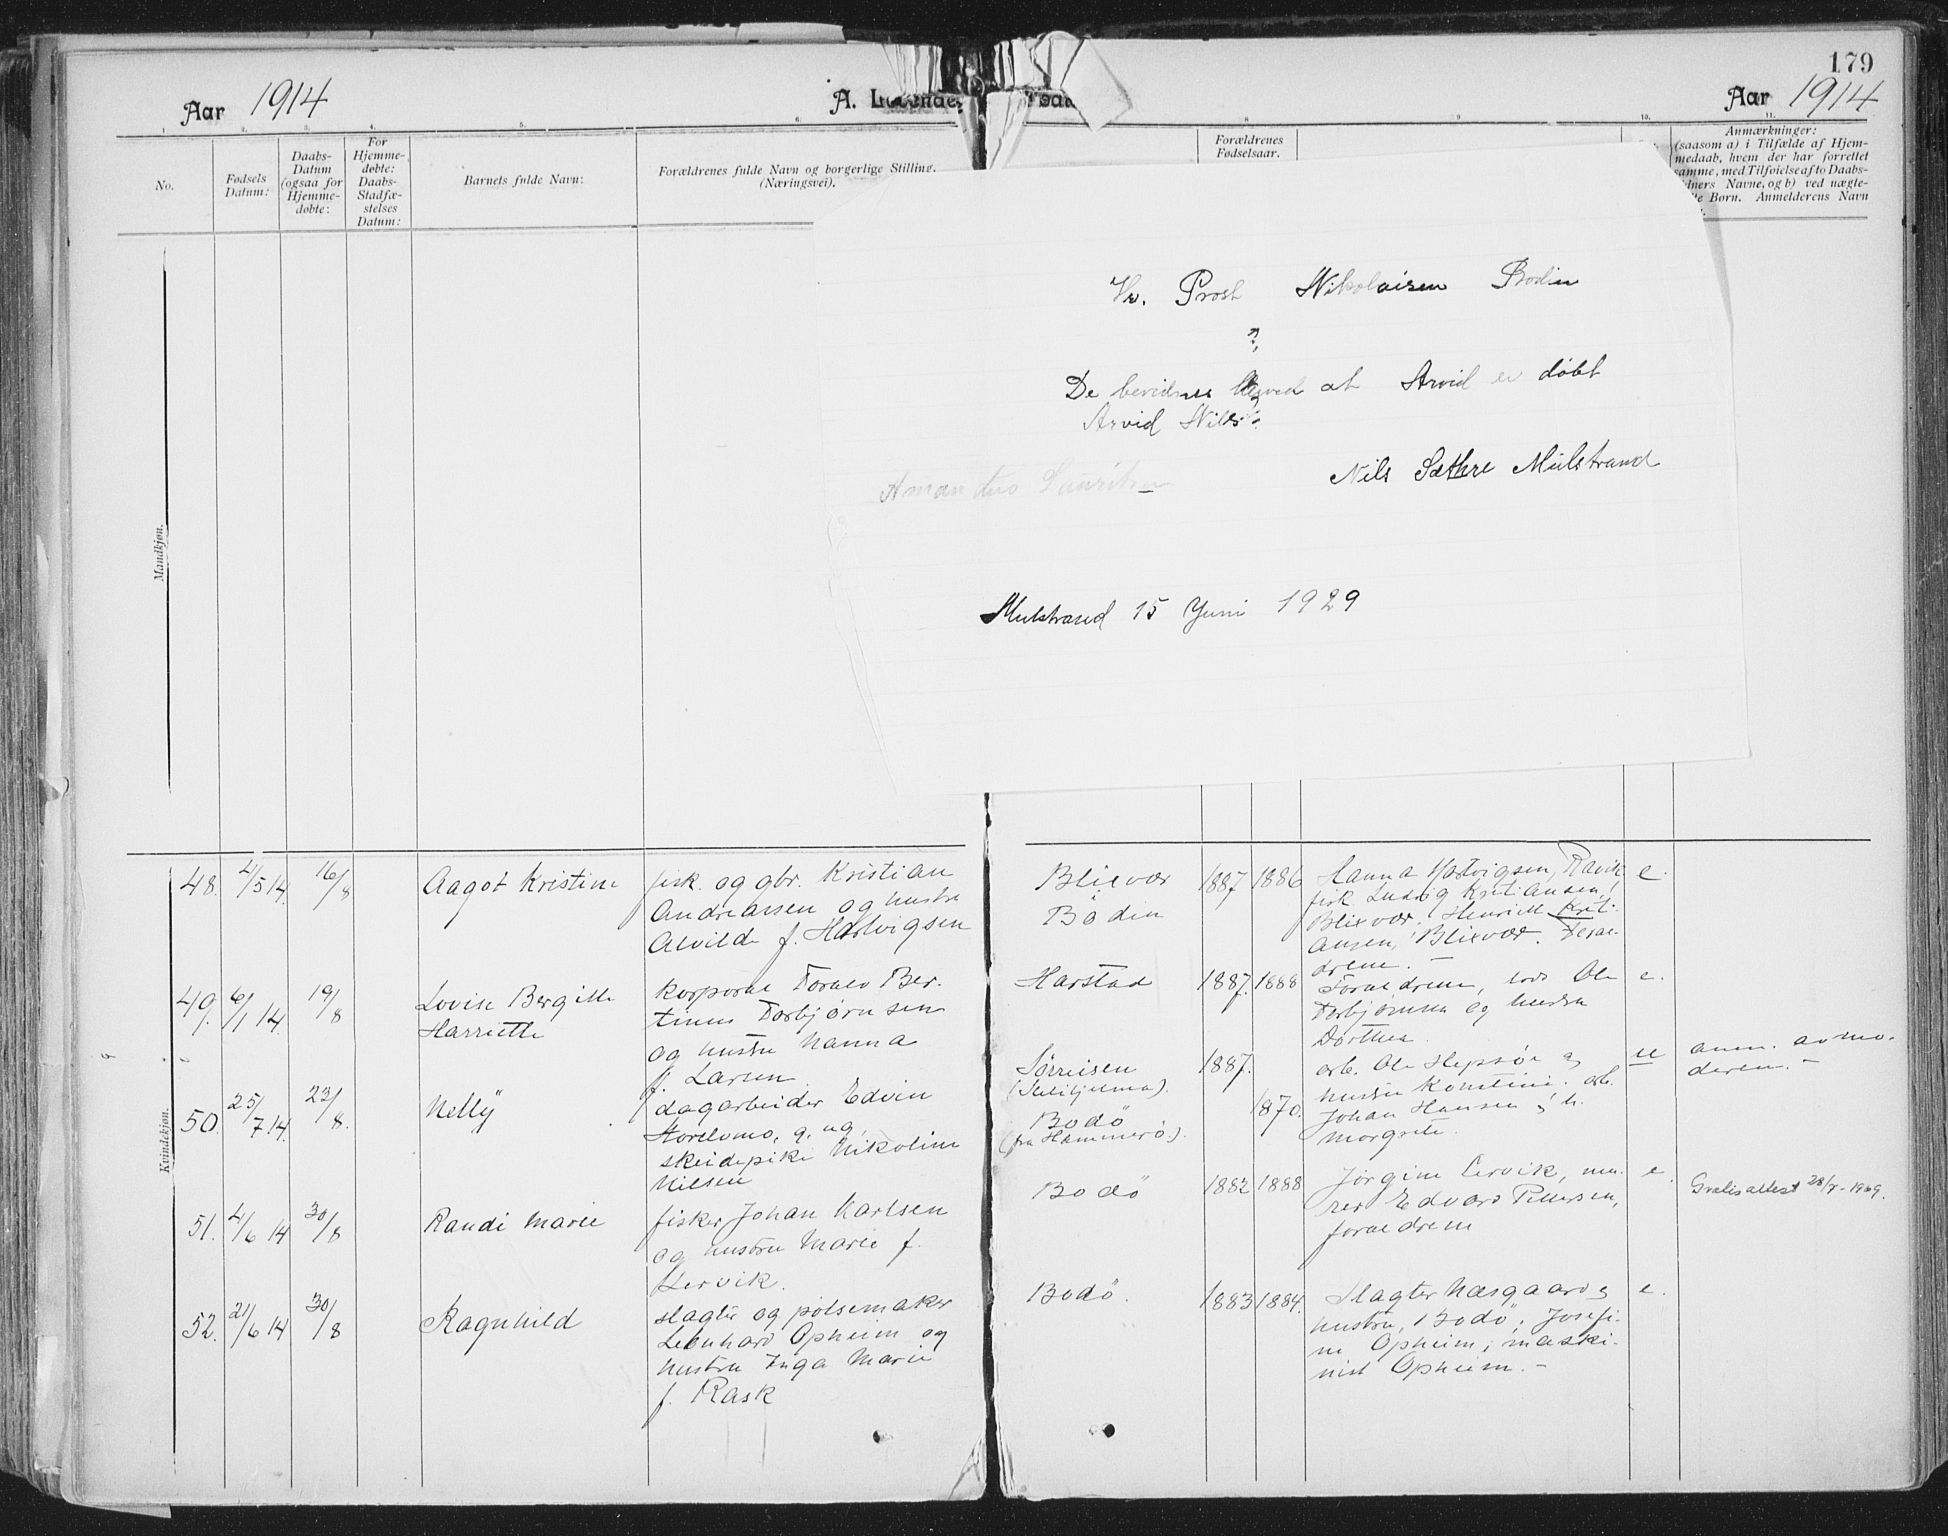 179
Aar 1914
A. Levende
Aar 1914
1. 2. 3. 4. 5. 6. 8 9 10. 11.
No.
Fødsels
Datum:
Daabs-
Datum
(ogsaa for
Hjemme-
døbte:
For
Hjemme-
døbte:
Daabs-
Stadfæ-
stelses
Datum:
Barnets fulde Navn:
Forældrenes fulde Navn og borgerlige Stilling.
(Næringsvei).
Forældrenes
Fødselsaar.
Anmærkninger:
(saasom a) i Tilfælde af Hjem-
medaab, hvem der har forrettet
samme, med Tilføielse af to Daabs-
idners Navne, og b) ved uægte-
te Børn. Anmelderens Navn
Hr. Prost Nikolaisen Bodin
De bevidnes herved at Arvid er døbt
Arvid Nils
Nils Sæthre Mulstrand
Amandus Lauritsen
Mulstrand 15 Juni 1929
Mandkjøn.
Kvindekjøn.
48. 4/5 14. 16/8 Aagot Kristine
fisk. og gbr. Kristian
Andreassen og hustru
Alvilde f. Hartvigsen
Blixvær
Bodin
1887 1886
Hanna Hartvigsen, Ravik
fisk Ludvig Kristiansen,
Blixvær, Henriette Krist-
ansen, Blixvær. Foræl-
drene. –
e.
49. 6/1 14. 19/8 Lovise Bergitte
Harriette
korporal Toralv Ber-
tinus Torbjørnsen
og hustru Nanna
f. Larsen
Harstad
1887. 1888
Forældrene, Ole
Torbjørnsen og hustru
Dorthea
e.
50. 25/7 14. 23/8. Nelly
dagarbeider Edvin
Storelvmo, g. og
skeidepike Nikoline
Nilsen
Sørreisen
(Sulitjelma).
Bodö
(fra Hammerö).
1887.
1870.
arb. Ole Hepsöe og
hustru Konstine. arb.
Johan Hansen og h.
Margrete.
u
anm. av mo-
deren. –
51. 4/6 14 30/8 Randi Marie
fisker Johan Karlsen
og hustru Marie f.
Lervik.
Bodö
1882 1888
Jørgine Lervik, mu-
rer Edvard Pettersen,
forældrene
e.
Gratisattest 28/7-1969.
52. 21/6 14 30/8 Ragnhild
slagter og pølsemaker
Leonhard Opheim og
hustru Inga Marie
f. Rask
Bodö.
1883 1884.
Slagter Næsgaard og
hustru, Bodö, Josefi-
ne Opheim, maski-
nist Opheim. –
e.